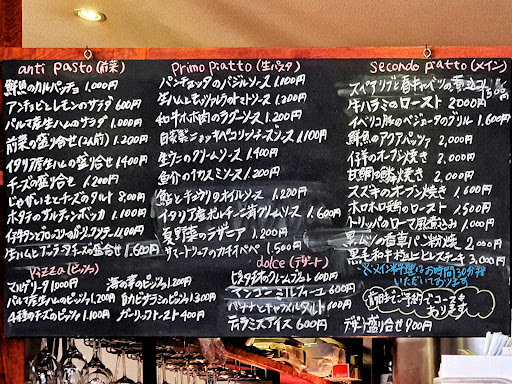 anti pasto (前菜)
鮮魚のカルパッチョ 1,000円
アンチョビとレモンのサラダ 600円
パルマ産生ハムのサラダ 1,000円
前菜の盛り合せ(2人前) 1,200円
イタリア産生ハムの盛り合せ 1,400円
チーズの盛り合せ 1,200円
じゃがいもとチーズのタルト 800円
ホタテのサルティンボッカ 1,100円
仔牛タンとブロッコリーのガーリックソテー 1,100円
生ハムとブッラータチーズの盛合せ 1,600円
Pizza (ピッツァ)
マルゲリータ 1000円
パルマ産生ハムのピッツァ 1,200
4種チーズのピッツァ 1,100円
海の幸のピッツァ 1,100円
自家ピザミラミのピッツァ 1,300
ガーリックトースト 400円
Primo piatto (生パスタ)
パンチェッタのバジルソース 1,100円
生ハムとモッツァレラのトマトソース 1,200円
和牛ホホ肉のラグーソース 1,200円
自家製ニョッキペコリーノチーズソース 1,100円
生ウニのクリームソース 1,400円
魚介のイカスミソース 1,200円
鮎とキュウリのオイルソース 1,200円
イタリア産ポルチーニ茸クリームソース 1,600円
夏野菜のラザニア 1,200円
サマートリュフのカチョエペペ 1,500円
dolce (デザート)
ピスタチオのクレームブリュレ 600円
マンゴーミルフィーユ 600円
バナナとキャラメルタルト 600円
ティラミスアイス 600円
secondo piatto (メイン)
スペアリブと春キャベツの煮込み 1,500円
牛ハラミのロースト 2000円
イベリコ豚のベジョータのグリル 1,600円
鮮魚のアクアパッツァ 2,000円
仔羊のオーブン焼き 2,000円
甘鯛の鱗焼き 2,000円
スズキのオーブン焼き 1,600円
ホロホロ鶏のロースト 1,500円
トリッパのローマ風煮込み 1,000円
黒ムツの香草パン粉焼 2,000円
黒毛和牛ギアラのステーキ 3,000円
※メイン料理はお時間30分程
いただいております
前日までご予約でコースも
あります
デザート盛り合せ 900円